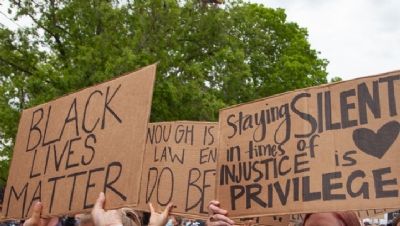 BLACK
LIVES
MATTER
NOUGH IS
LAW EN
DO BE
Staying SILENT
in times of
INJUSTICE is
PRIVILEGE